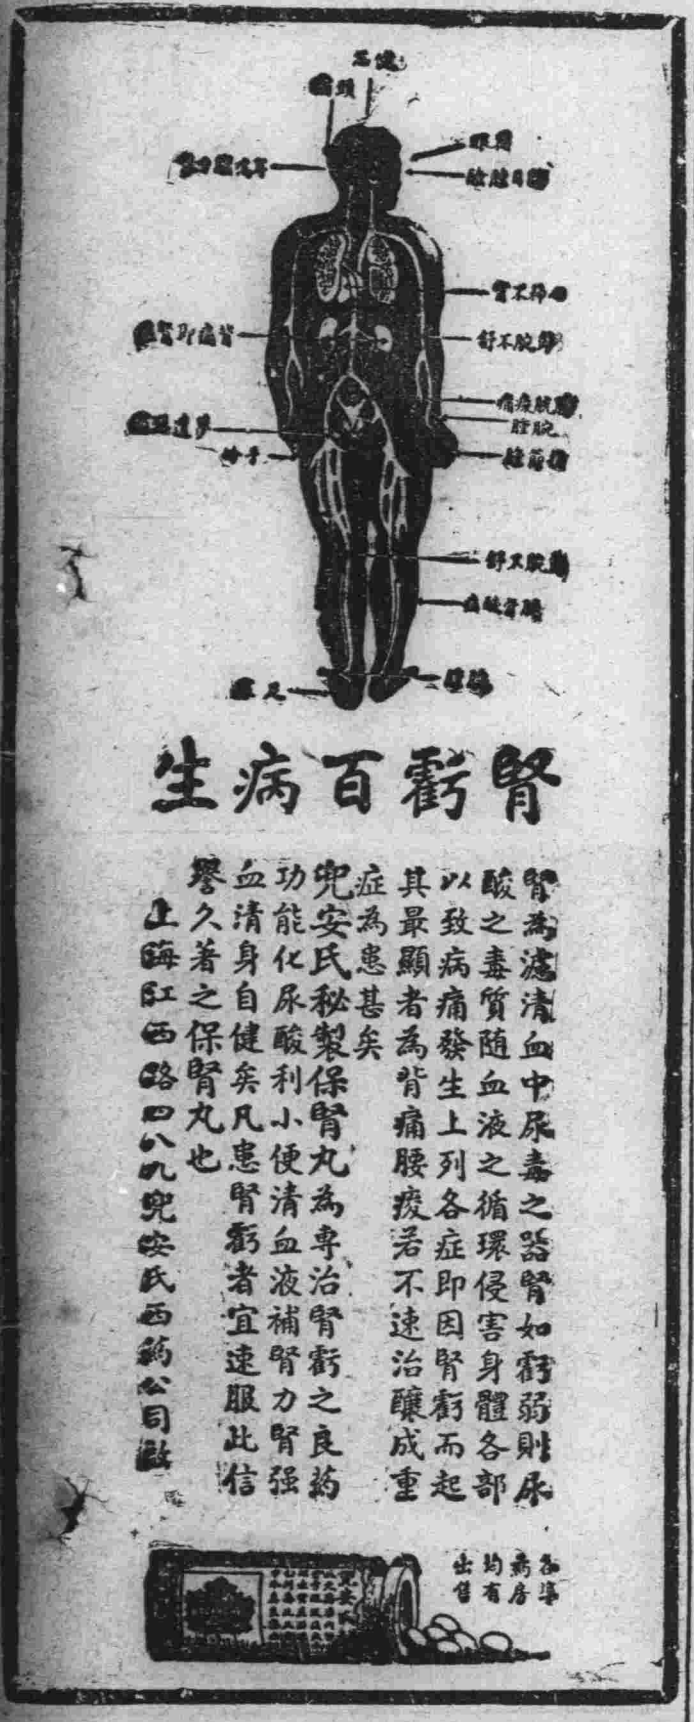 健忘
頭痛
眼圈
胃不
背痛即腎
不舒
夢遺
腕腫
不舒
足
腎虧百病生
腎為濾清血中尿毒之器腎如虧弱則尿
酸之毒質随血液之循環侵害身體各部
以致病痛發生上列各症即因腎虧而起
其最顯者為背痛腰痠若不速治釀成重
症為患甚矣
兜安氏秘製保腎丸為專治腎虧之良葯
功能化尿酸利小便清血液補腎力腎强
血清身自健矣凡患腎虧者宜速服此信
譽久著之保腎丸也
上海江西路四八九兜安氏西藥公司啟
各埠
葯房
均有
出售